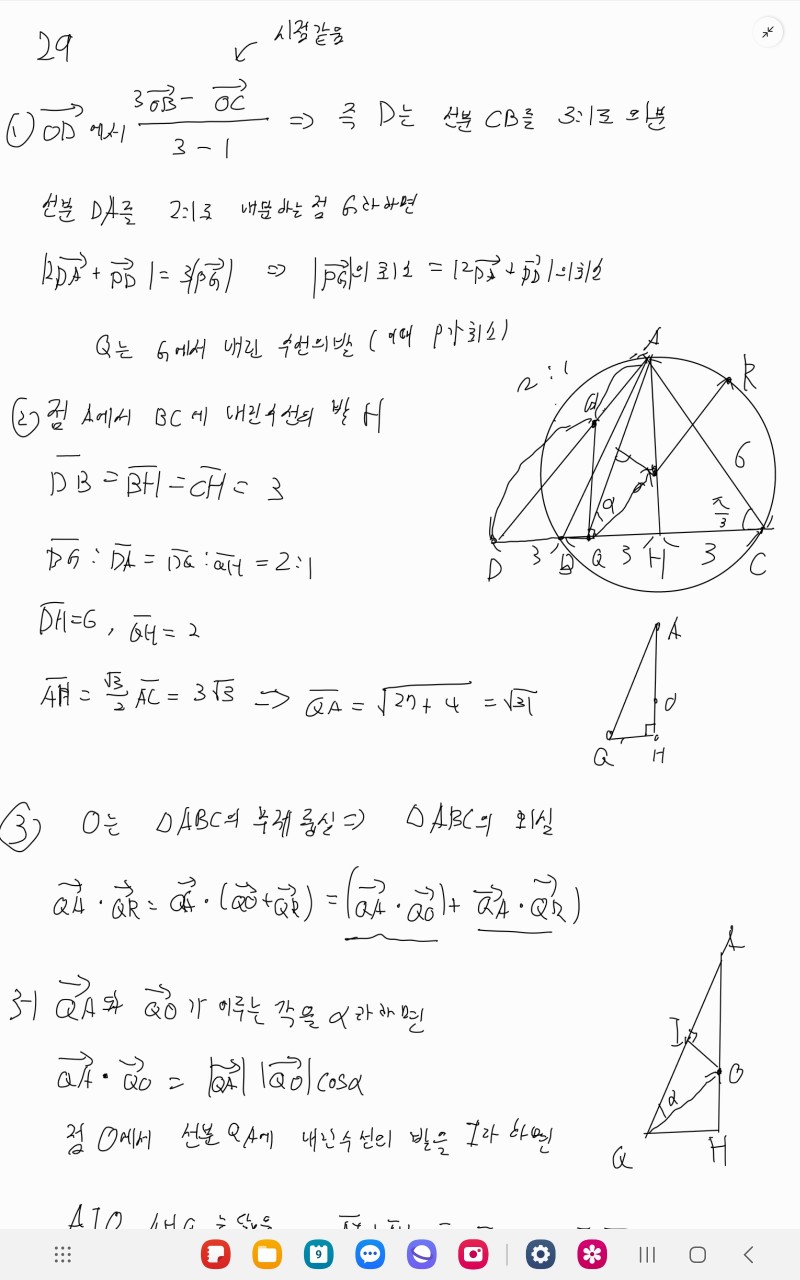 29
시점같음
① OD 에서 3OB - OC / 3 - 1 ⇒ 즉 D는 선분 CB를 3:1로 외분
선분 DA를 2:1로 내분하는 점 G라하면
|2PA + PD| = 3|PG| ⇒ |PG|의 최소 = |2PA + PD|의 최소
Q는 G에서 내린 수선의발 (이때 P가 최소)
② 점 A에서 BC에 내린수선의 발 H
DB = BH = CH = 3
DG : DA = DQ : QH = 2:1
DH=6, QH = 2
AH = √3/2 AC = 3√3 ⇒ QA = √27+4 = √31
A
R
2:1
G
6
O
π/3
α
D 3 B Q 3 H 3 C
A
O
Q H
③ O는 △ABC의 무게중심 ⇒ △ABC의 외심
QA · QR = QA · (QO + QR) = (QA · QO) + QA · QR)
3-1 QA와 QO가 이루는 각을 α라하면
QA · QO = |QA| |QO| cosα
점 O에서 선분 QA에 내린수선의 발을 I라 하면
A
I
O
α
Q H
9